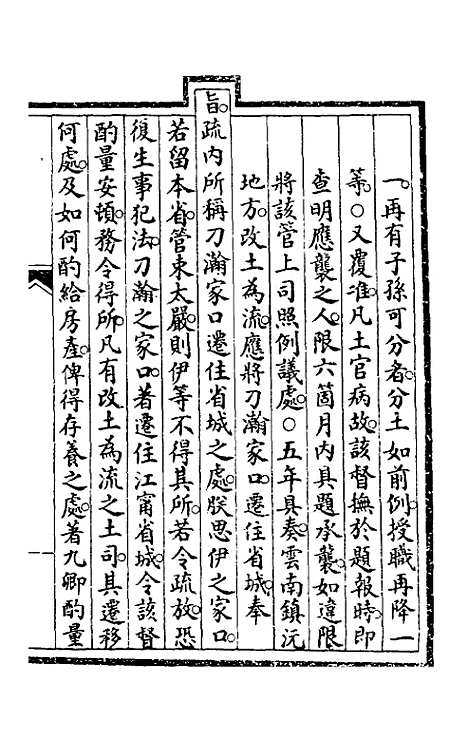 一。再有子孫可分者。分土如前例。授職再降一
等。○又覆准。凡土官病故。該督撫於題報時。即
查明應襲之人。限六箇月內具題承襲。如違限
將該管上司照例議處。○五年具奏。雲南鎮沅
地方。改土為流。應將刀瀚家口。遷住省城。奉
旨。疏內所稱刀瀚家口遷住省城之處。朕思伊之家口。
若留本省。管束太嚴。則伊等不得其所。若令疏放。恐
復生事犯法。刀瀚之家口。著遷住江甯省城。令該督
酌量安頓。務令得所。凡有改土為流之土司。其遷移
何處。及如何酌給房產。俾得存養之處。著九卿酌量